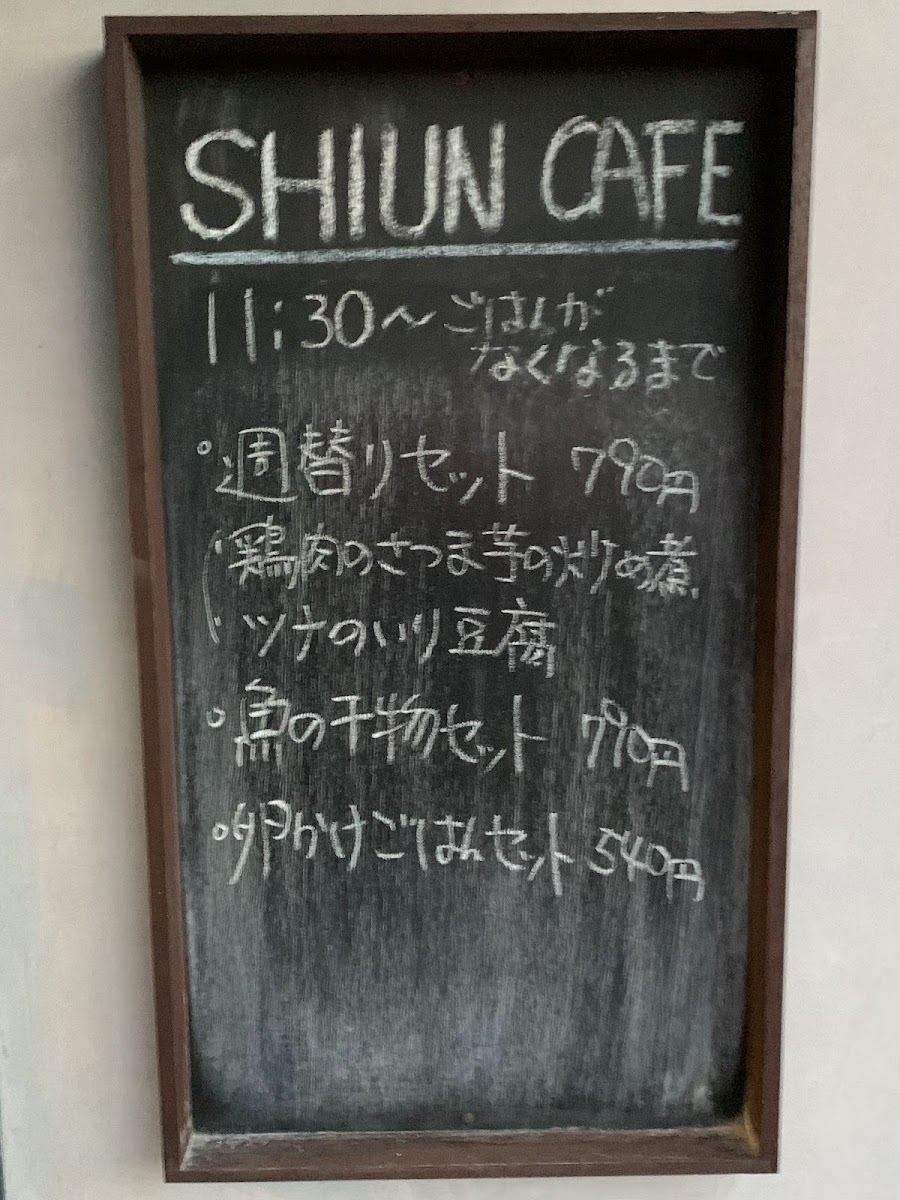 SHIUN CAFE
11:30〜ごはんが
なくなるまで
○週替りセット 790円
・鶏肉のさつま芋の炒め煮
・ツナのいり豆腐
○魚の干物セット 790円
○卵かけごはんセット 540円